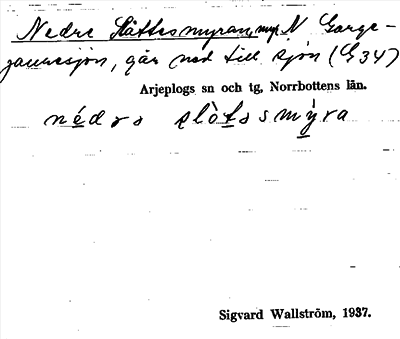 Nedre Slåttesmyran, myr N Gorge-
jauresjön, går ned till sjön (G 34)
Arjeplogs sn och tg, Norrbottens län.
nédrə slòtəsmỳra
Sigvard Wallström, 1937.